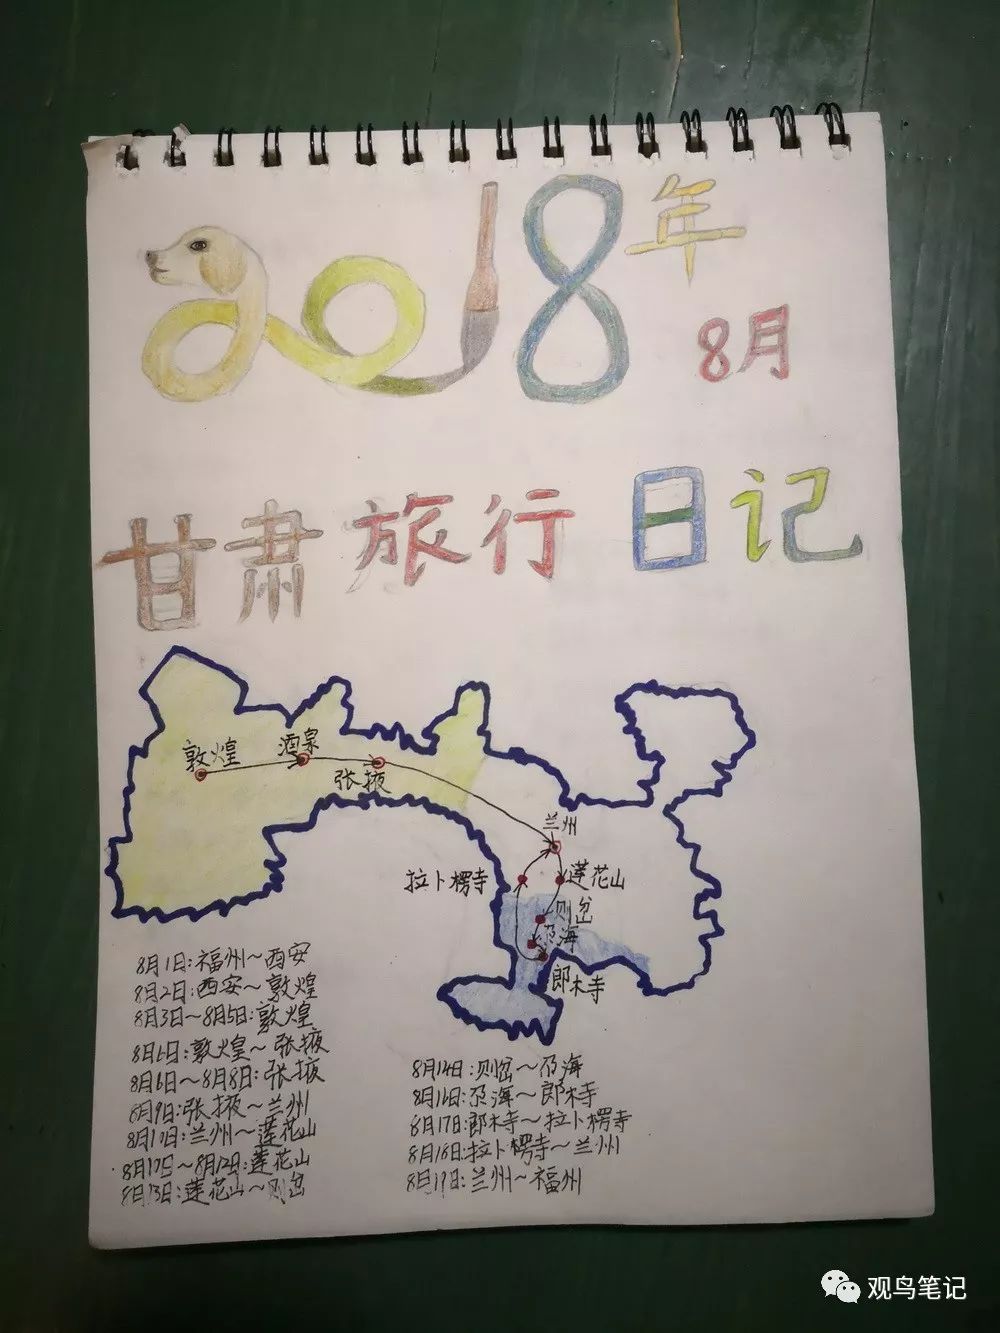 2018年
8月
甘肃旅行日记
敦煌
酒泉
张掖
兰州
拉卜楞寺
莲花山
则岔
尕海
郎木寺
8月1日:福州～西安
8月2日:西安～敦煌
8月3日～8月5日:敦煌
8月6日:敦煌～张掖
8月6日～8月8日:张掖
8月9日:张掖～兰州
8月10日:兰州～莲花山
8月11日～8月12日:莲花山
8月13日:莲花山～则岔
8月14日:则岔～尕海
8月16日:尕海～郎木寺
8月17日:郎木寺～拉卜楞寺
8月18日:拉卜楞寺～兰州
8月19日:兰州～福州
观鸟笔记